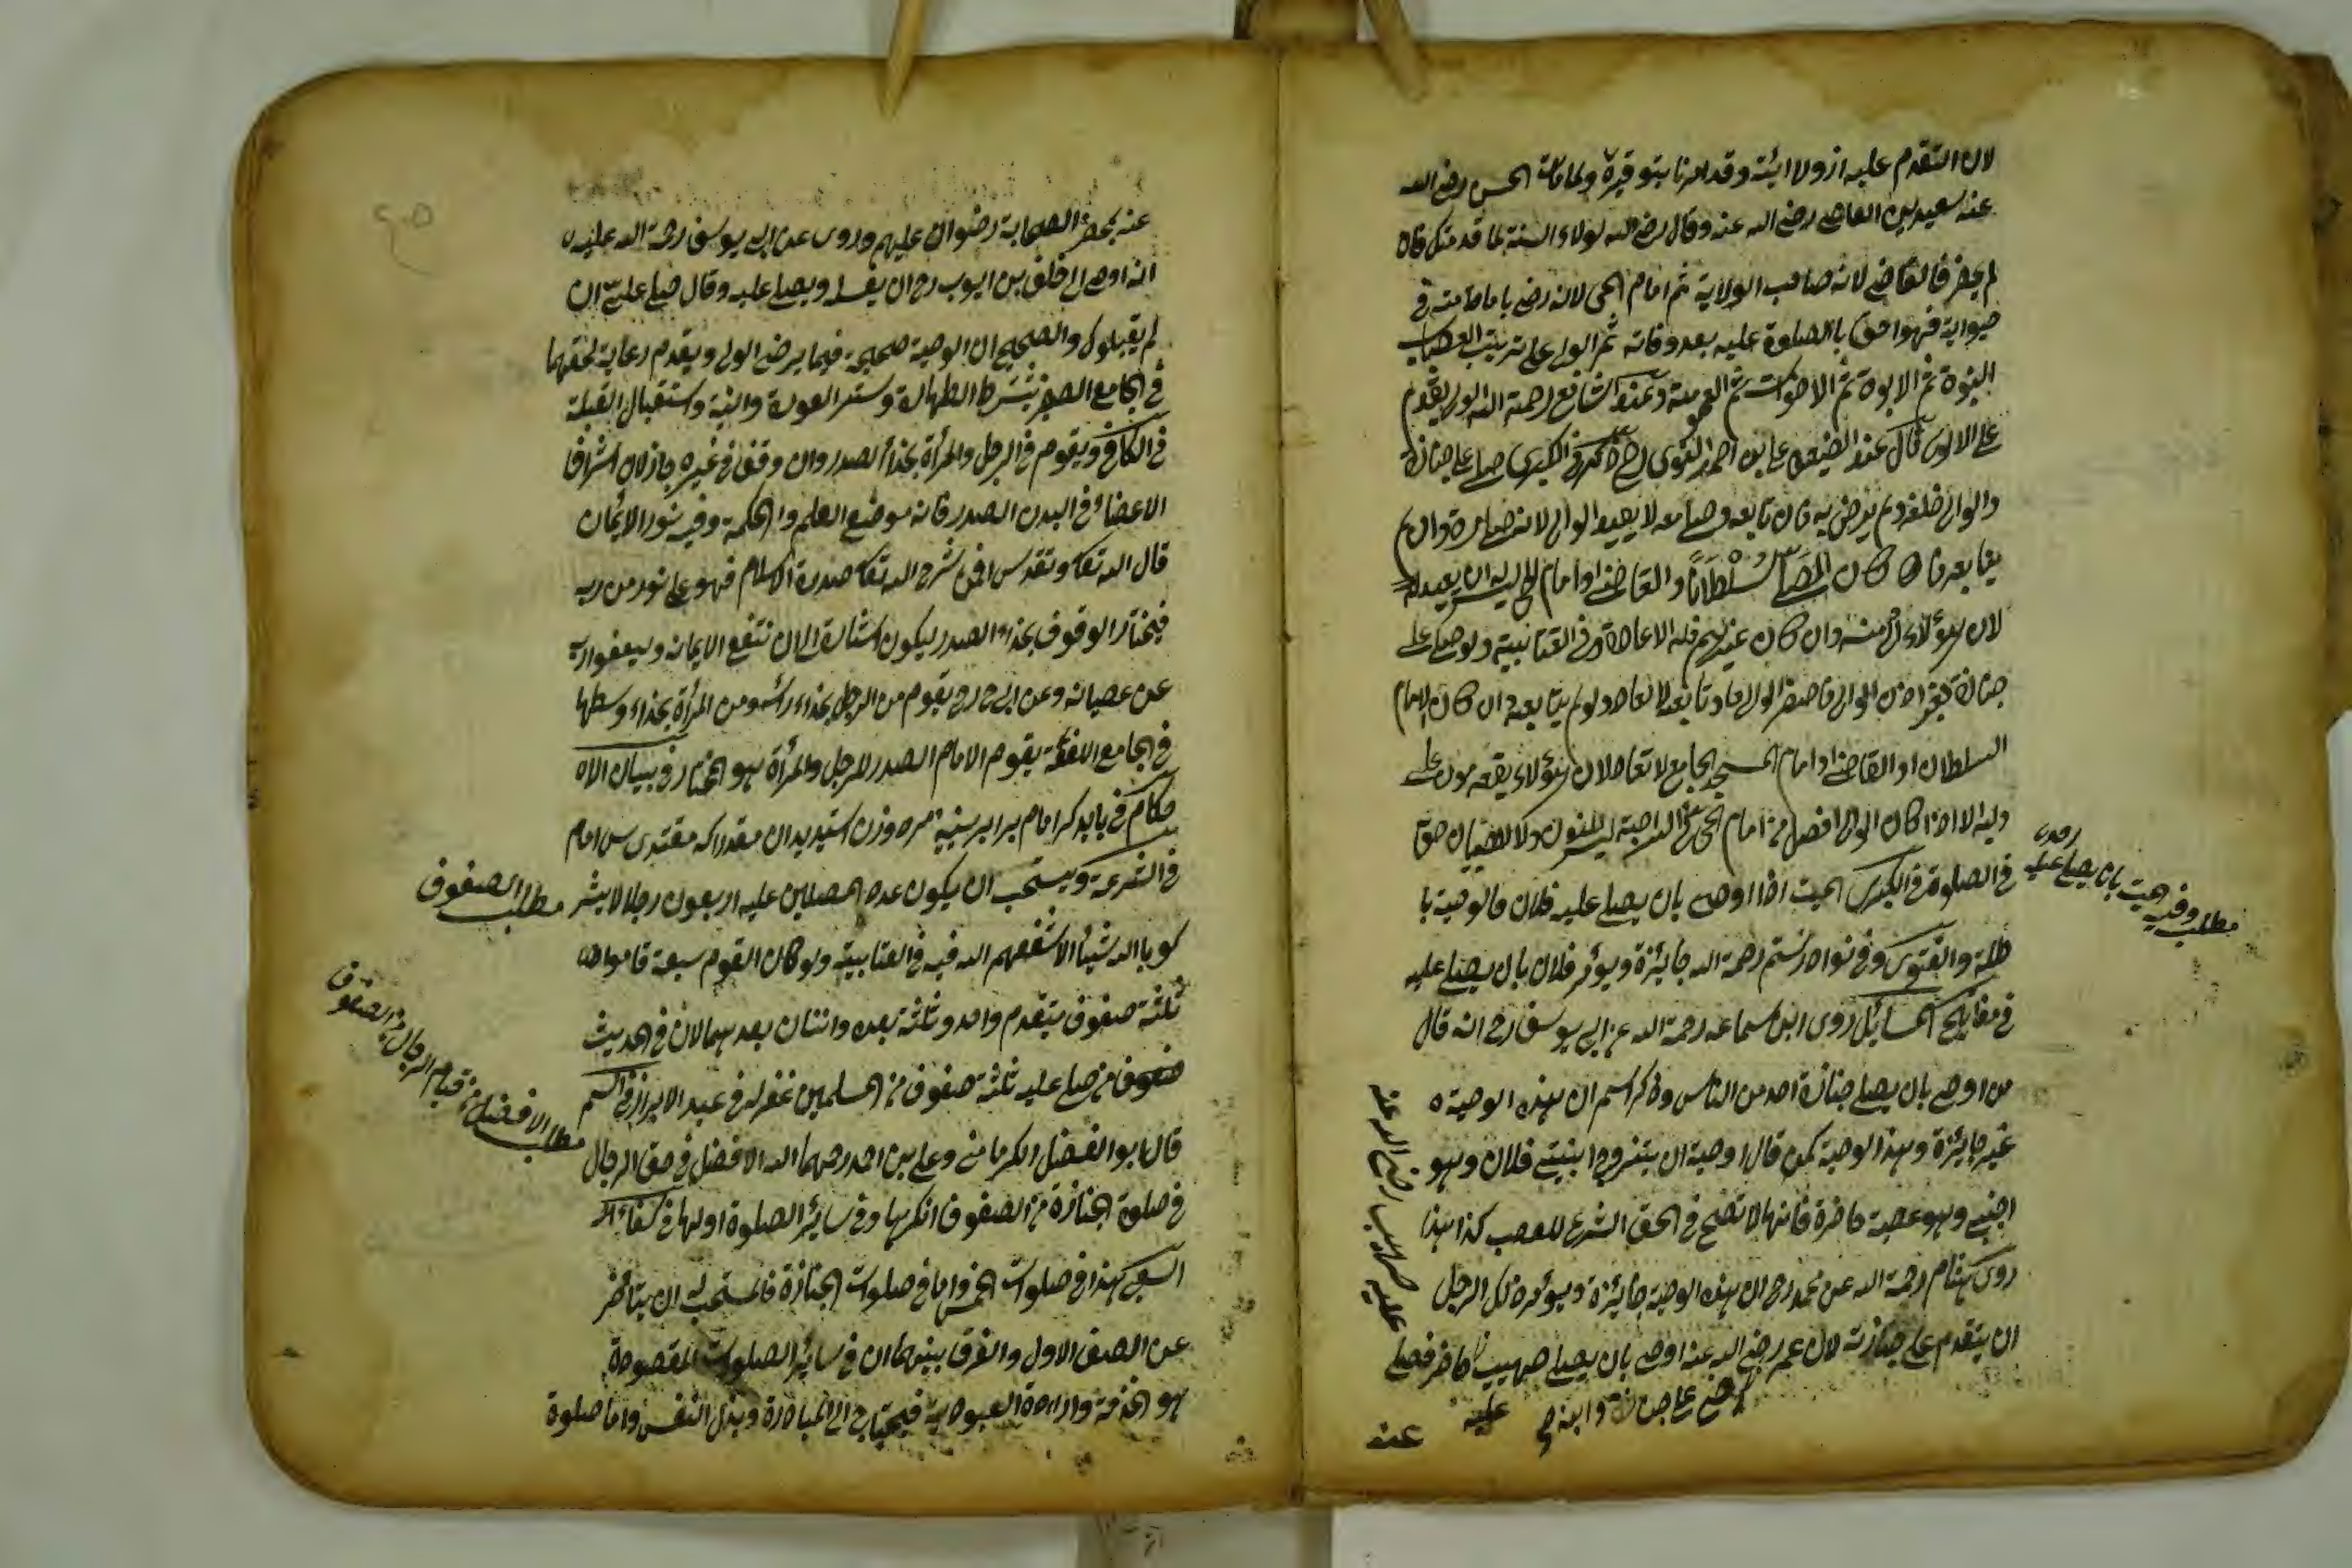 لان التقدم عليه ازدراء به وقد امرنا بتوقيره ولما مات الحسن رضي الله
عنه سعيد بن العاص رضي الله عنه وقال رضي الله لولا السنة لما قدمتك فان
لم يحضر فالقاضي لانه صاحب الولاية ثم امام الحي لانه رضي بامامته في
حيواته فهو احق بالصلوة عليه بعد وفاته ثم الولي على ترتيب العصبات
البنوة ثم الابوة ثم الاخوة ثم العمومة وعند الشافعي رحمة الله الولي يقدم
على الوالي قال عند الضيعفي علي بن احمد الغوري رح في الكبرى صلى على جنازة
والولي خلفه ولم يرض به فان تابعه وصلى معه لا يعيد الولي لانه صلى مرة وان لم
يتابعه فان كان المصلي سلطانا والقاضي او امام الحي ليس له ان يعيد
لان هؤلاء اولى منه وان كان غيرهم فله الاعادة وفي العتابية ولو صلى على
جنازة بغير اذن الولي فاحضر الولي اعاد وتابعه لا تعاد ولو لم يتابعه وان كان الامام
السلطان او القاضي او امام المسجد الجامع لا تعاد لان هؤلاء يقدمون على
وليه الا اذا كان الولي افضل من امام الحي ليس للنسوان ولا للصبيان حق
في الصلوة في الكبرى الميت اذا اوصى بان يصلي عليه فلان فالوصية با
طلة والفتوى وفي نوادر رستم رحمة الله جائزة ويؤمر فلان بان يصلي عليه
في مفاتيح المسائل روى ابن سماعه رحمة الله عن ابي يوسف رح انه قال
من اوصى بان يصلي جنازة احد من الناس وذكر اسم ان هذه الوصية
غير جائزة وهذا الوصية كمن قال اوصية ان يتزوج ابنتي فلان وهو
اجنبي وهو عصبة حاضرة فانها لا تصح في الحق الشرع للعصب كذا هذا
روى هشام رحمة الله عن محمد رح ان هذه الوصية جائزة ويؤمر ذلك الرجل
ان يتقدم على جنازته لان عمر رضي الله عنه اوصى بان يصلي صهيب حاضر فصلى
عليه
عنه
عليه صهيب رضي الله عنه
مطلب وفيه الميت بان يصلي عليه
عنه بحضر الصحابة رضوان عليهم وروى عن ابي يوسف رحمة الله عليه
انه اوصى الى خلف بن ايوب رح ان يغسله ويصلي عليه وقال صلى علي ان
لم يقبلوك والصحيح ان الوصية صحيحة فيما يرضى الولي ويقدم رعاية لحقهما
في الجامع الصغير يشترط الطهارة وستر العورة والنية واستقبال القبلة
في الكافي ويقوم في الرجل والمرأة بحذاء الصدر وان وقف في غيره جاز لان اشراف
الاعضاء في البدن الصدر فانه موضع العلم والحكمة وفيه نور الايمان
قال الله تعا وتقدس افمن شرح الله تعا صدره الاسلام فهو على نور من ربه
فيختار الوقوف بحذاء الصدر ليكون اشارة الى ان تنفع الايمانه وليعفوا ربه
عن عصيانه وعن ابي ح رح يقوم من الرجل بحذاء رأسه ومن المرأة بحذاء وسطها
في الجامع الفقه يقوم الامام الصدر للرجل والمرأة هو المختار وفي بيان الا
حكام في بايد كه امام برابر سينه مرد وزن استد بدان مقدار كه مقتدى س امام
في الشرعة ويستحب ان يكون عدد المصلين عليه اربعون رجلا لا يشر
كو بالله شيئا الا شفعهم الله فيه في العتابية ولو كان القوم سبعة قاموا
ثلثة صفوف يتقدم واحد وثلثة بعده واثنان بعدهما لان في الحديث
صفوف من صلى عليه ثلثة صفوف من المسلمين غفر له في عبد الابرار في السم
قال ابو الفضل الكرماني وعلي بن احمد رحمهما الله الافضل في حق الرجال
في صلوة الجنازة من الصفوف اخرها وفي سائر الصلوة اولها في كفاية
السعي هذا في صلوات الخمس واما في صلوات الجنازة فالمستحب له ان يتأخر
عن الصف الاول والفرق بينهما ان في سائر الصلوات المقصودة
هو الخدمة وارادة العبودية فيحتاج الى المبادرة وبذل النفس واما صلوة
مطلب الصفوف
مطلب الافضل من قيام الرجال في الصفوف